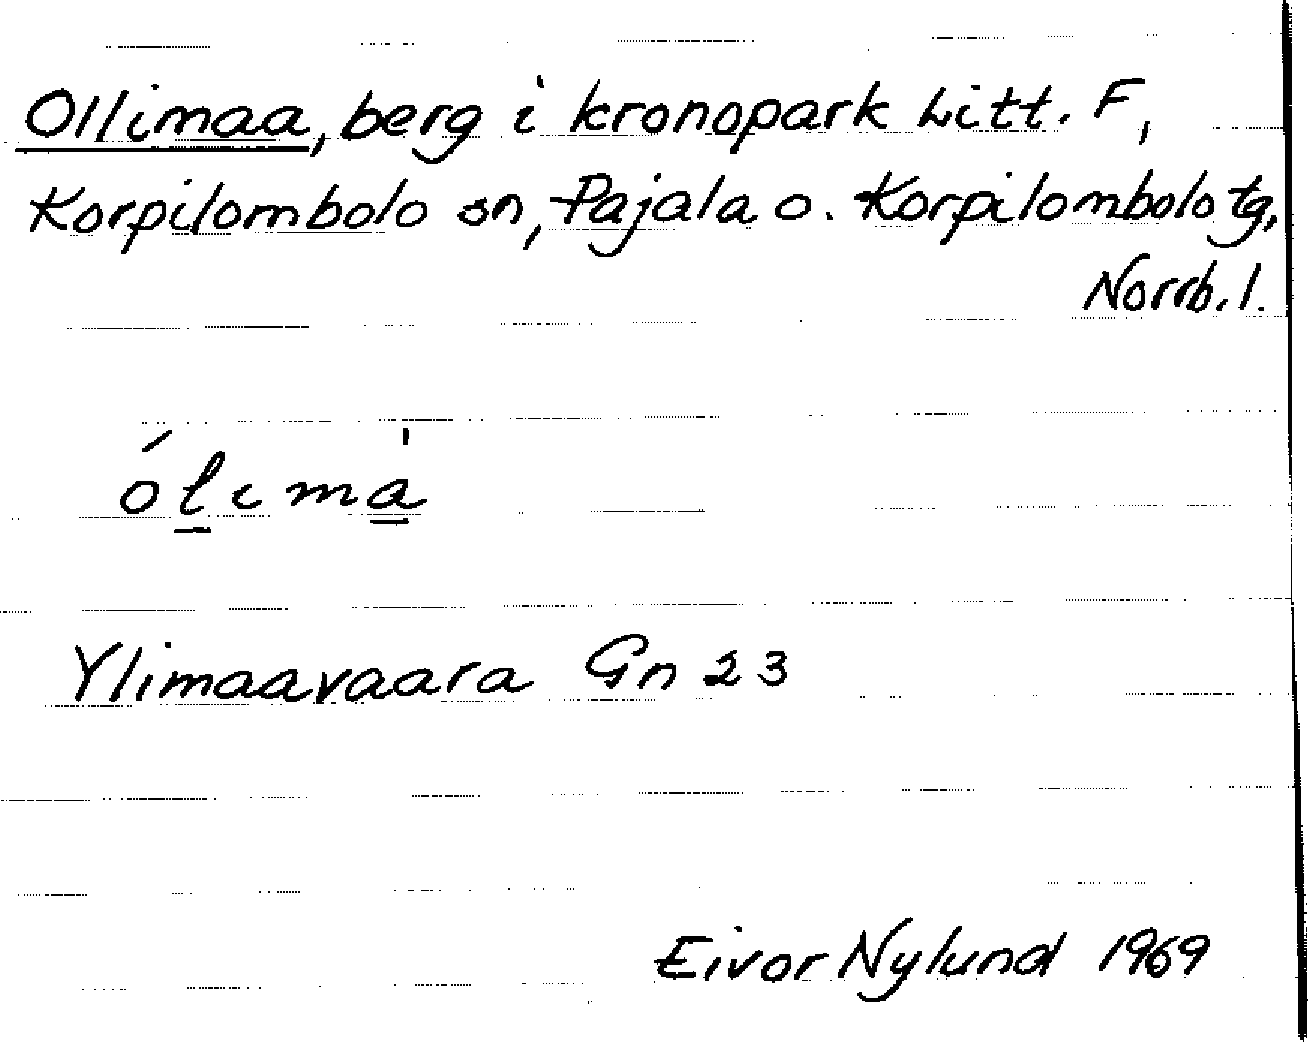 Ollimaa, berg i kronopark Litt. F,
Korpilombolo sn, Pajala o. Korpilombolo tg,
Norrb. l.
ólimà
Ylimaavaara Gn 23
Eivor Nylund 1969